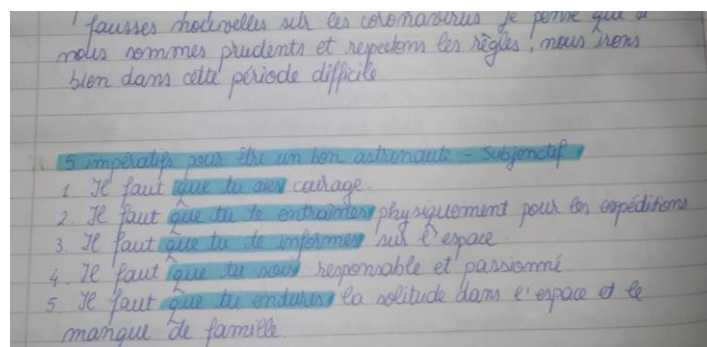 fausses nouvelles sur les coronavirus je pense que si
nous sommes prudents et respectons les règles, nous irons
bien dans cette période difficile
5 impératifs pour être un bon astronaute - Subjonctif
1 Il faut que tu aies courage.
2. Il faut que tu te entraînes physiquement pour les expéditions
3. Il faut que tu te informes sur l'espace.
4. Il faut que tu sois responsable et passionné
5. Il faut que tu endures la solitude dans l'espace et le
manque de famille.